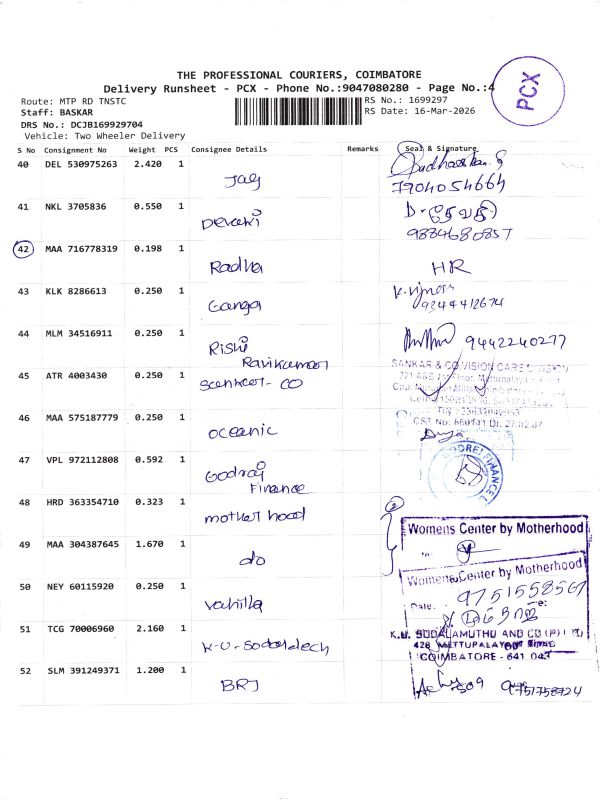 THE PROFESSIONAL COURIERS, COIMBATORE
Delivery Runsheet - PCX - Phone No.:9047080280 - Page No.:4
PCX
Route: MTP RD TNSTC
RS No.: 1699297
Staff: BASKAR
RS Date: 16-Mar-2026
DRS No.: DCJB169929704
Vehicle: Two Wheeler Delivery
S No Consignment No Weight PCS Consignee Details Remarks Seal & Signature
40 DEL 530975263 2.420 1 Jay
7904054664
41 NKL 3705836 0.550 1 Devaki D. தேவகி
9884680857
42 MAA 716778319 0.198 1 Radha HR
43 KLK 8286613 0.250 1 Ganga K.
9244412674
44 MLM 34516911 0.250 1 Rishi
Ravikumar
9442240277
45 ATR 4003430 0.250 1 Sankar - CO
SANKAR & CO VISION CARE DIVISION
46 MAA 575187779 0.250 1 Oceanic
47 VPL 972112808 0.592 1 Godraj
Finance
GODREJ FINANCE
48 HRD 363354710 0.323 1 mother hood
Womens Center by Motherhood
49 MAA 304387645 1.670 1 do
Womens Center by Motherhood
50 NEY 60115920 0.250 1 Vanilla
Date:
9751558567
51 TCG 70006960 2.160 1 K-U-
K.U. SODALAMUTHU AND CO (P) LTD
428 METTUPALAYAM ROAD
COIMBATORE - 641 043
52 SLM 391249371 1.200 1 BRJ
9751758724